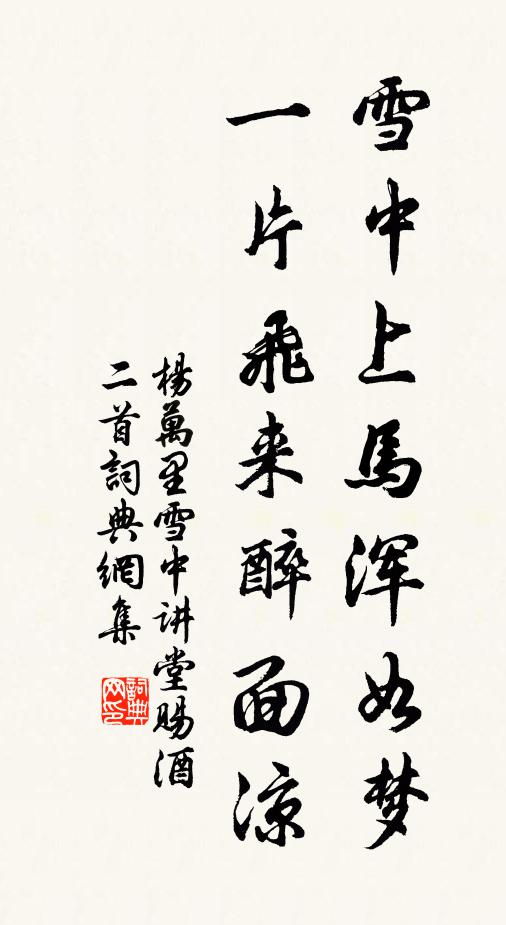 雪中上馬浑如梦
一片飛来醉面凉
楊萬里雪中讲堂賜酒
二首詞典網集
詞典
网印